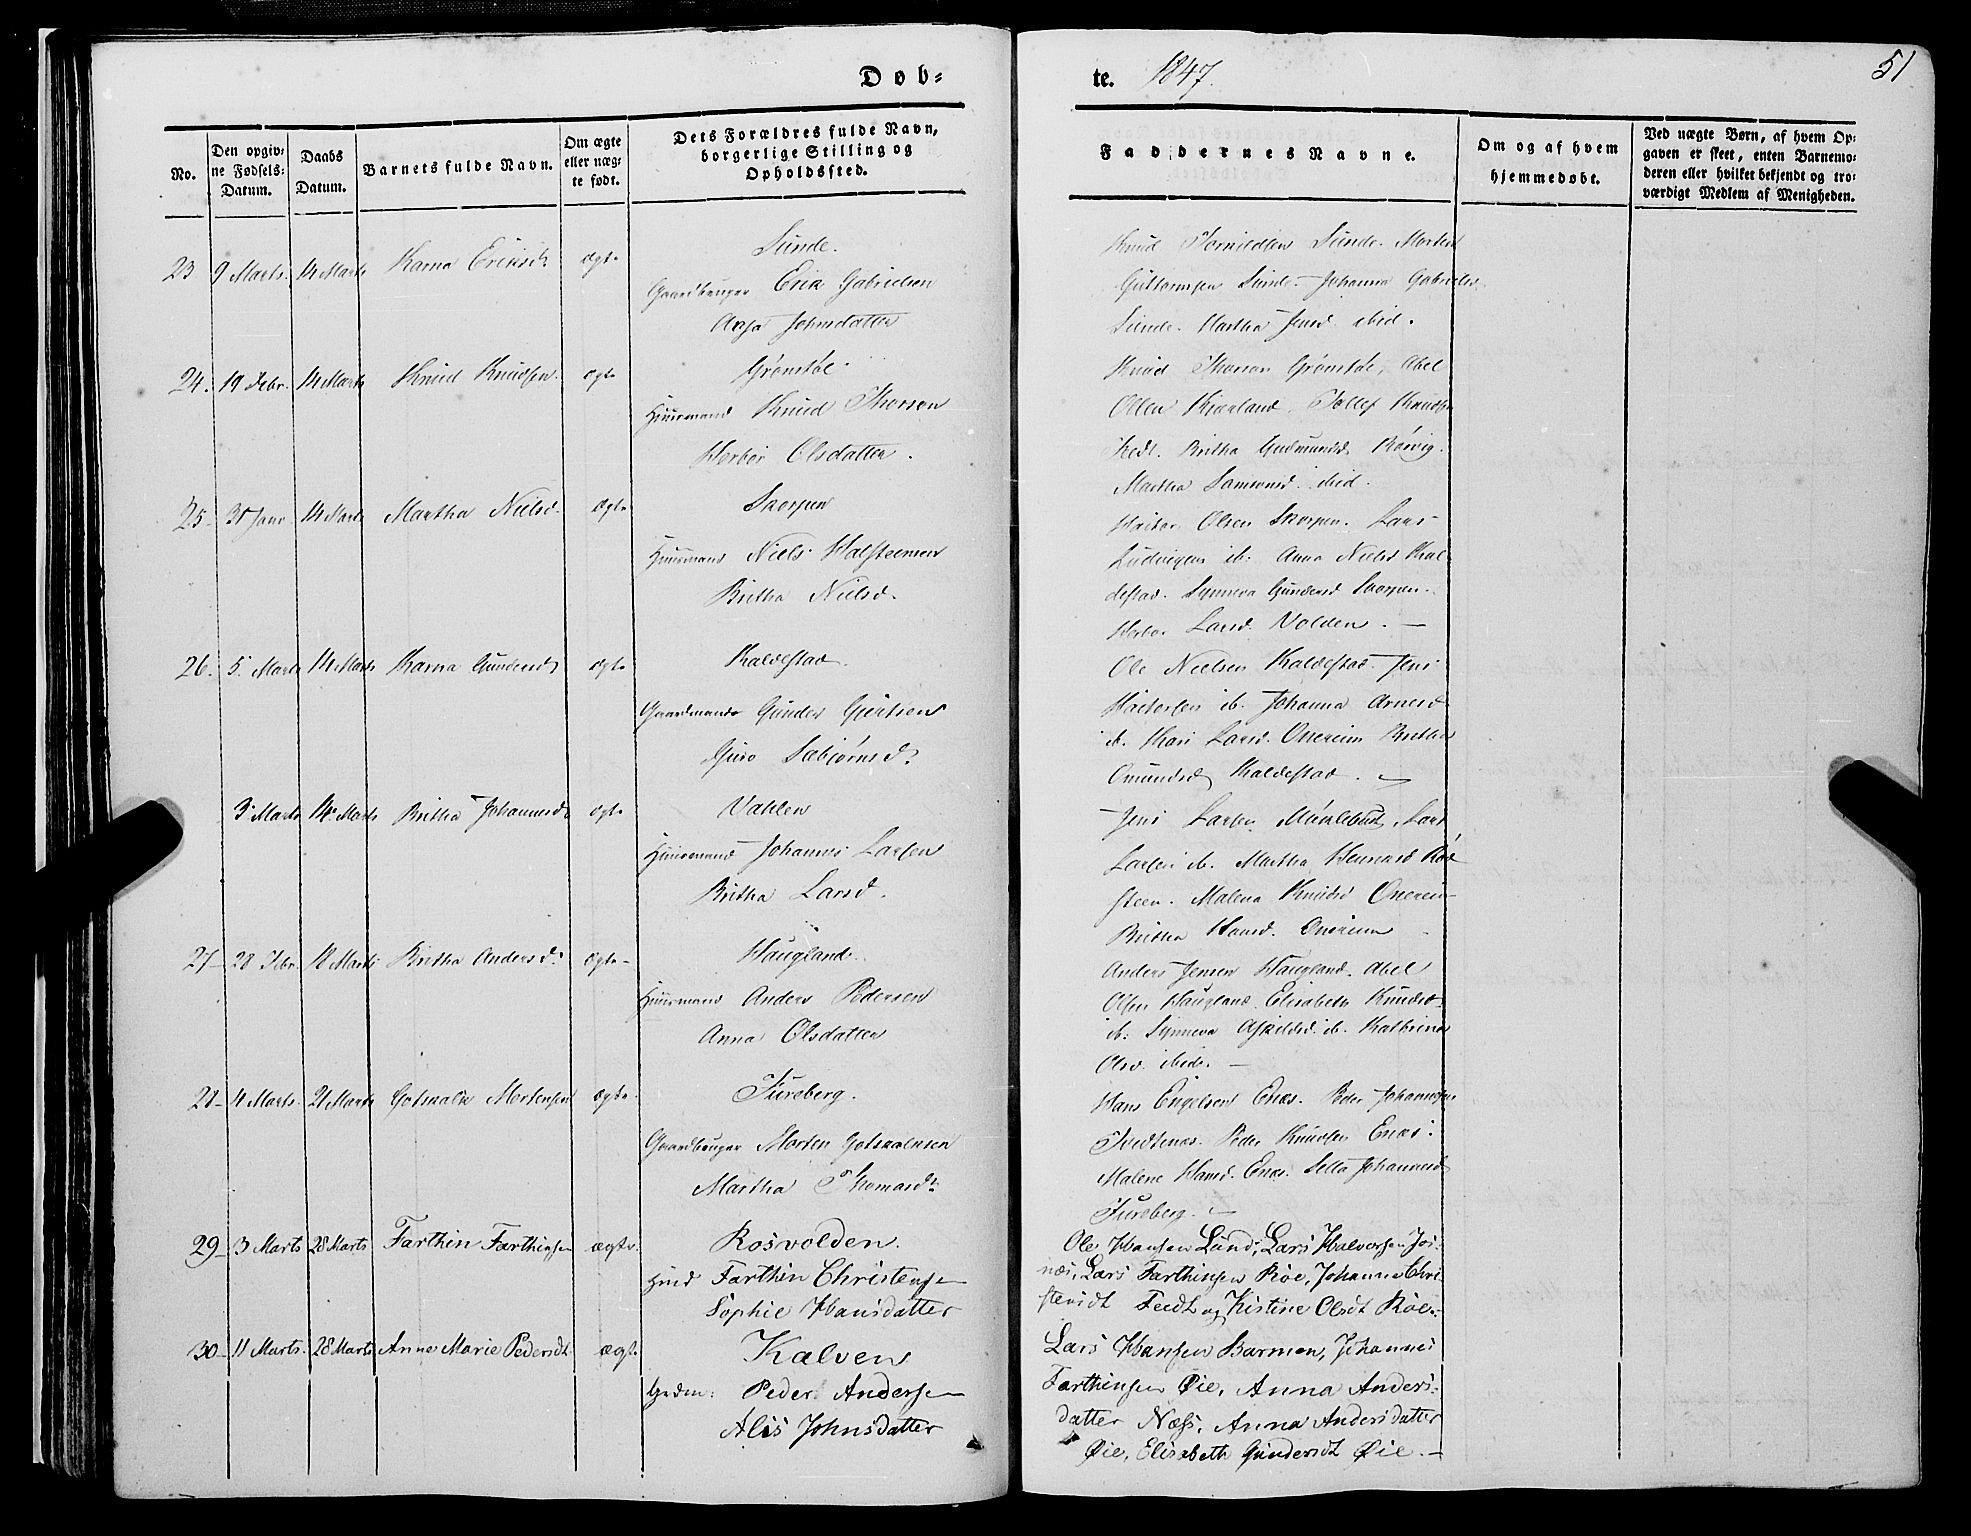 Døb=
te. 1847.
51
No.
Den opgiv=
ne Fødsels=
Datum.
Daabs
Datum.
Barnets fulde Navn.
Om ægte
eller uæg=
te født.
Dets Forældres fulde Navn,
borgerlige Stilling og
Opholdssted.
Faddernes Navne.
Om og af hvem
hjemmedøbt.
Ved uægte Børn, af hvem Op=
gaven er skeet, enten Barnemo=
deren eller hvilket bekjendt og tro=
værdigt Medlem af Menigheden.
23 9 Marts. 14 Marts Karna Eriksd. ægte
Sunde.
Gaardbruger Erik Gabrielsen
Johnsdatter
Knud Sunde. Morten
Guttormsen Sunde. Johanna Gabrielsd.
Sunde. Martha Jensd. ibid.
24. 19 Febr. 14 Marts Knud Knudsen. ægte
Grønstøl.
Huusmand Knud Thorsen
Herbor Olsdatter.
Knud Thorsen Grønstøl, Abel
Olsen Kjærland, Tollef Knuds.
Britha Gudmundsd. Røvig.
Martha Samsonsd. ibid.
25. 31 Janr. 14 Marts Martha Nielsd. ægte
Skorpen
Huusmand Niels Halsteensen
Britha Nielsd.
Olsen Skorpen. Lars
Ludvigsen ib. Anna Nielsd. Kal-
destad. Synneva Gundersd. Skorpen.
Herbor Larsd. Volden. —
26. 5. Marts 14 Marts Karna Gundersd. ægte
Kaldestad.
Gaardmand Gunder Gjertsen
Guro Sæbjørnsd.
Ole Nielsen Kaldestad. Jens
ib. Johanna Arnesd.
ib. Kari Larsd. Onereim Britha
Omundsd. Kaldestad. —
3 Marts 14 Marts Britha Johannesd. ægte
Vahlen
Huusmand Johannes Larsen
Britha Larsd.
Jens Larsen Lars
Larsen ib. Martha
steen. Malena Knudsd. Onereim
Britha Hansd. Onereim
27- 28 Febr. 18 Marts Britha Andersd. ægte-
Haugland.
Huusmand Anders Pedersen
Anna Olsdatter
Anders Jensen Haugland. Abel
Olsen Haugland. Elisabeth Knudsd.
ib. Synneva Askildsd. ib. Kathrina
Olsd. ibid. —
28- 4 Marts. 21 Marts Gotskalk Mortensen ægte.
Fureberg.
Gaardbruger Morten Gotskalksen
Martha Thomasd.
Hans Engelsen Enæs. Peder Johannesen
Tvedtenæs. Peder Knudsen Enæs.
Malene Hansd. Enæs. Sella Johannesd.
Fureberg. —
29- 3 Marts 28 Marts Farthin Farthinsen ægte.
Rosvolden.
Hmd Farthin Christensen
Sophie Hansdatter
Ole Hansen Lund, Lars Halvorsen Jos-
næs, Lars Farthinsen Røe, Johanne Chri-
stensdt Feedt og Kistine Olsdt Røe.
30- 11 Marts. 28 Marts. Anne Marie Pedersdt ægte.
Kalven
Grdm: Peder Andersen
Alis Johnsdatter
Lars Hansen Barmen, Johannes
Farthinsen Øie, Anna Anders-
datter Næss, Anna Andersdatter
Øie, Elisabeth Gundersdt Øie. —